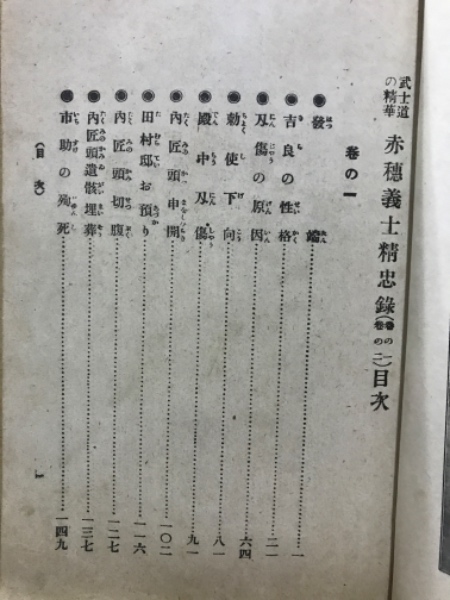 武士道の精華 赤穗義士精忠錄(卷の一 卷の二)目次
卷の一
●發端……一
●吉良の性格……二一
●刄傷の原因……六四
●勅使下向……八一
●殿中刄傷……九一
●內匠頭申開……一〇二
●田村邸お預り……一一六
●內匠頭切腹……一二七
●內匠頭遺骸埋葬……一三七
●市助の殉死……一四九
(目次)
一